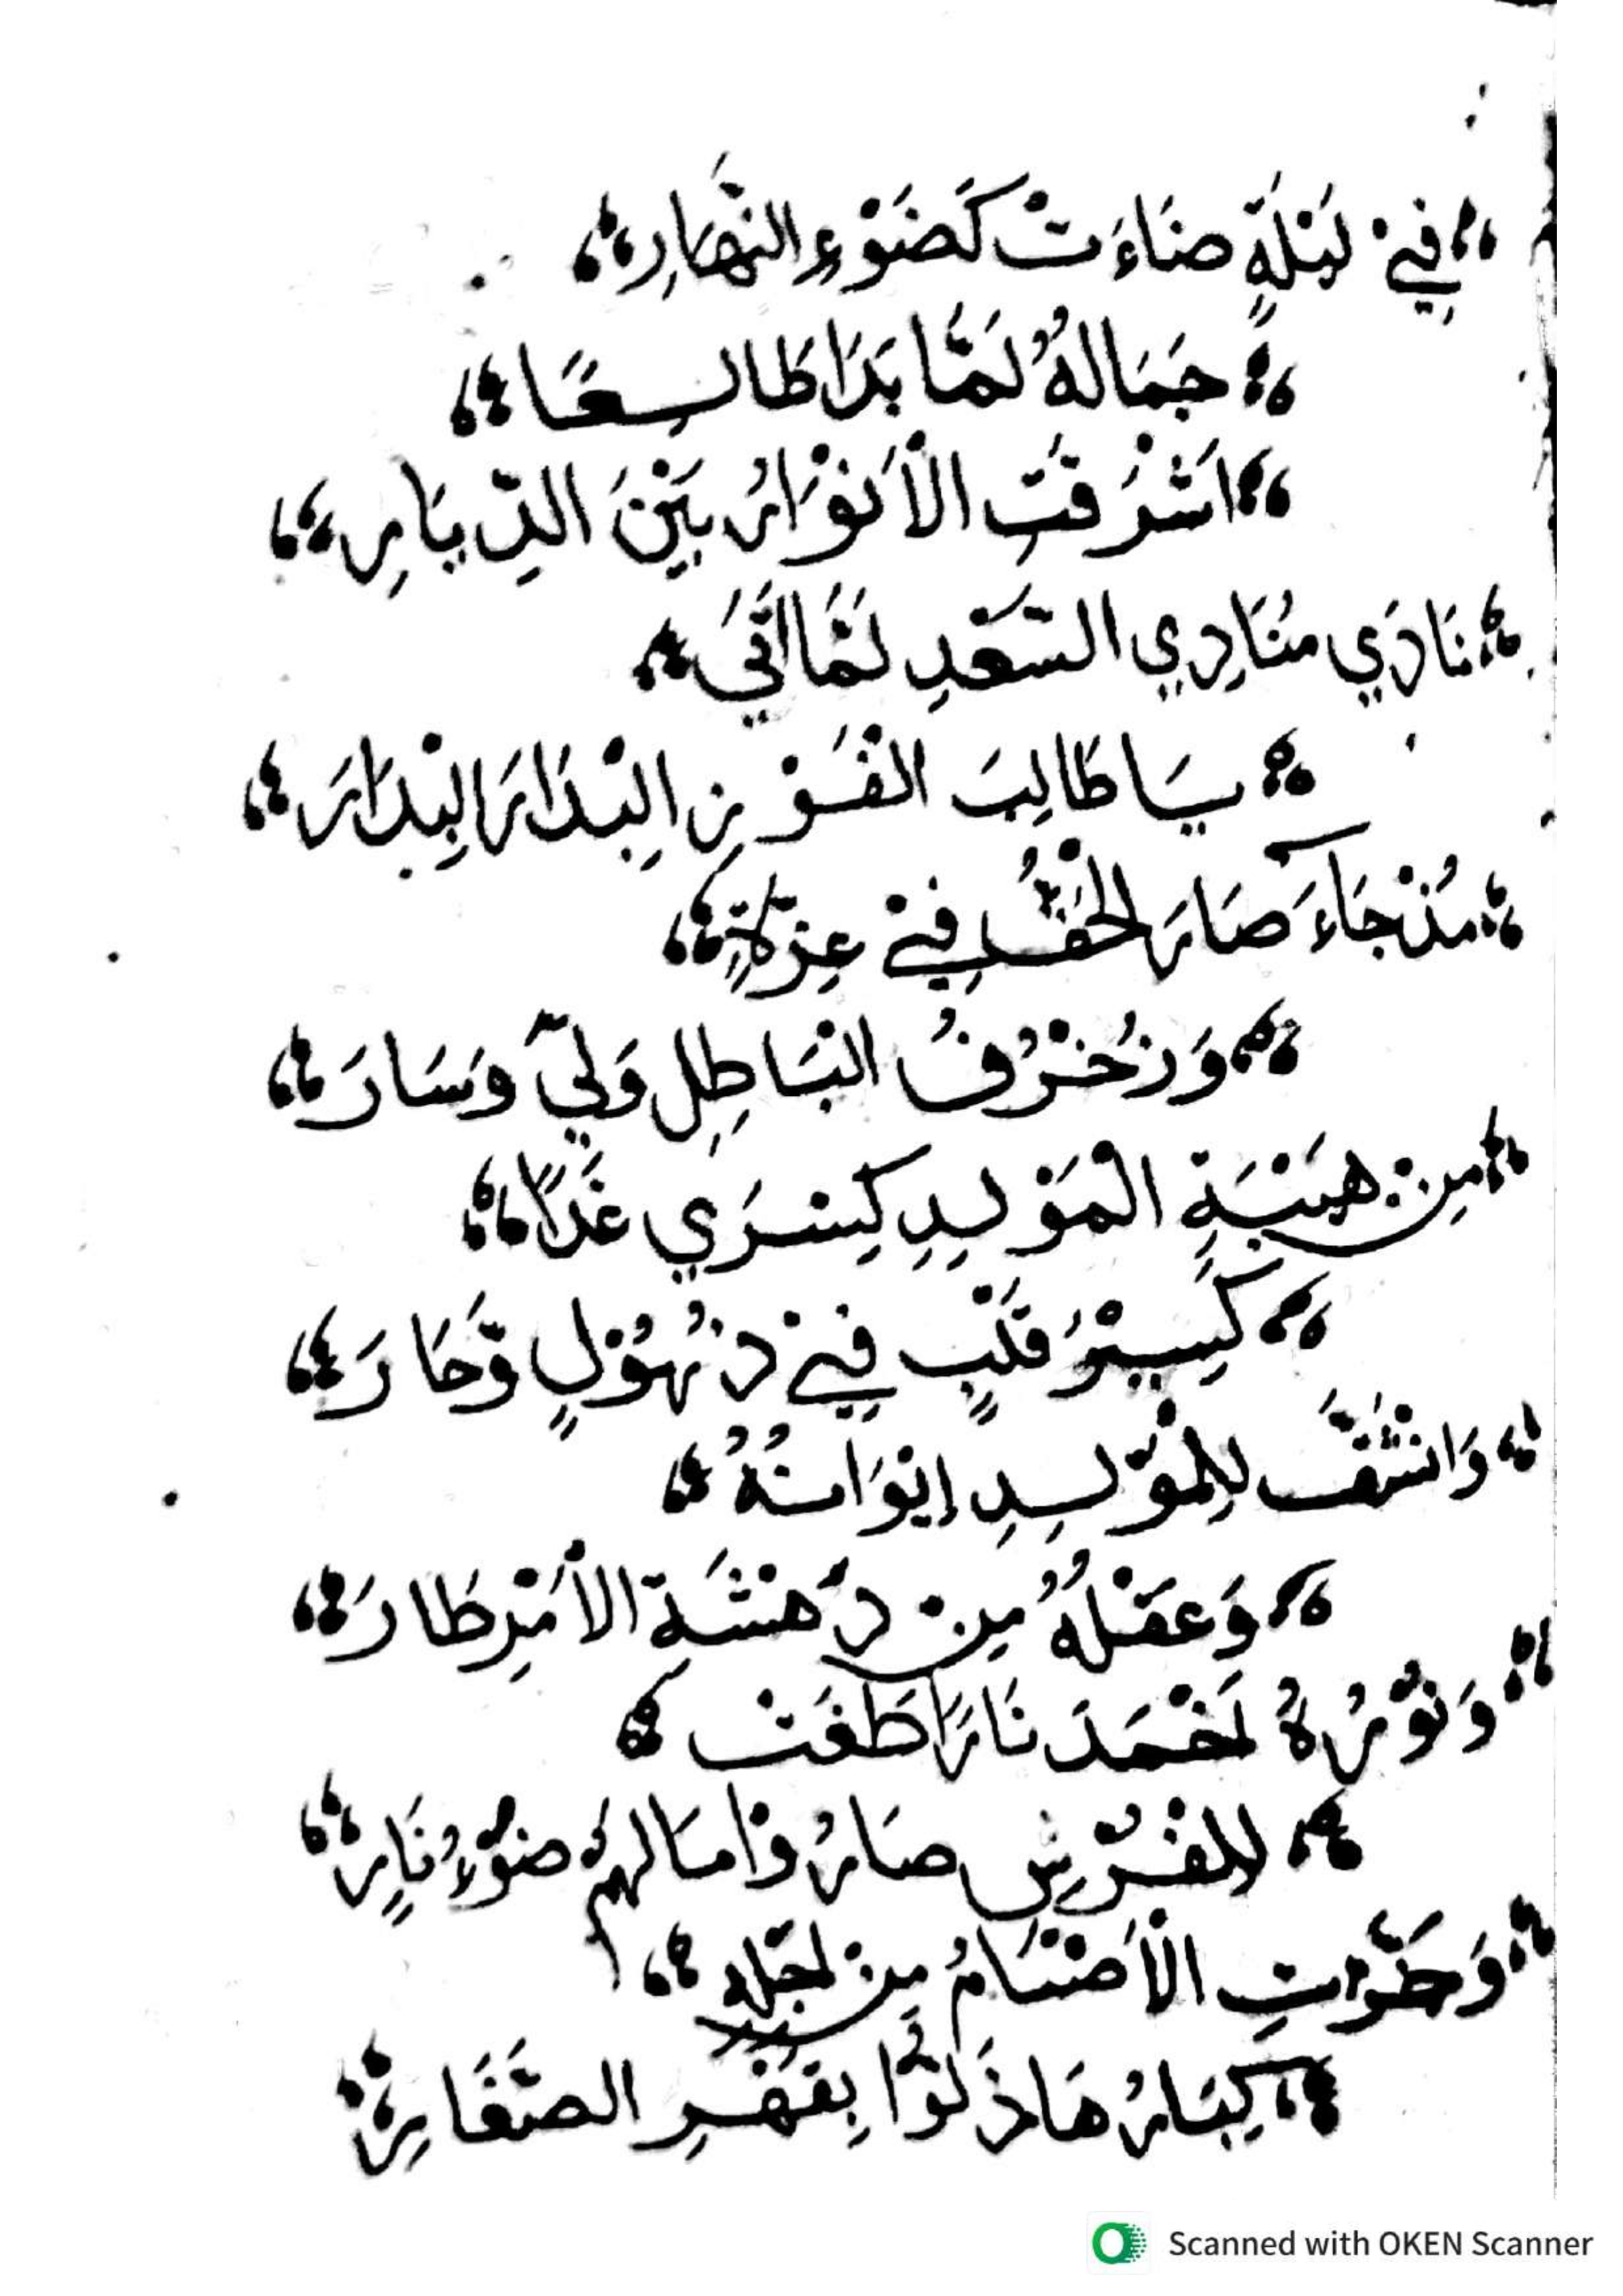 فِيْ لَيْلَةٍ ضَاءَتْ كَضَوْءِ النَّهَارِ
جَمَالهُ لَمَّا بَدَا طَالِعًا
اَشْرَقَتِ الْأَنْوَارُ بَيْنَ الدِّيَارِ
نَادَي مُنَادِي السَّعْدِ لَمَّا اَتَيَ
يَا طَالِبَ الْفَوْزِ اِلْبِدَارَ الْبِدَارَ
مُذْ جَاءَ صَارَ الْحَقُّ فِيْ عِزَّةٍ
وَزُخْرُفُ الْبَاطِلِ وَلِيّ وَسَارَ
مِنْ هَيْبَةِ الْمَوْلِدِ كِسْرَي غَدًا
كَسِيْرُ قَلْبٍ فِيْ ذُهُوْلٍ وَّحَارَ
وَانْشَقَّ لِلْمَوْلِدِ إيْوَانُهُ
وَعَقْلُهُ مِنْ دَهْشَةِ الْأَمْرِ طَارَ
وَنُوْرُهُ اَخْمَدَ نَارًا طَغَتْ
لِلْفُرْسِ صَارُوْا مَالَهُمْ ضَوْءُ نَارٍ
وَخَرَّتِ الْأَصْنَامُ مِنْ اَجْلِهِ
كِبَارُهَا ذَلُّوْا بِقَهْرِ الصَّغَارِ
Scanned with OKEN Scanner